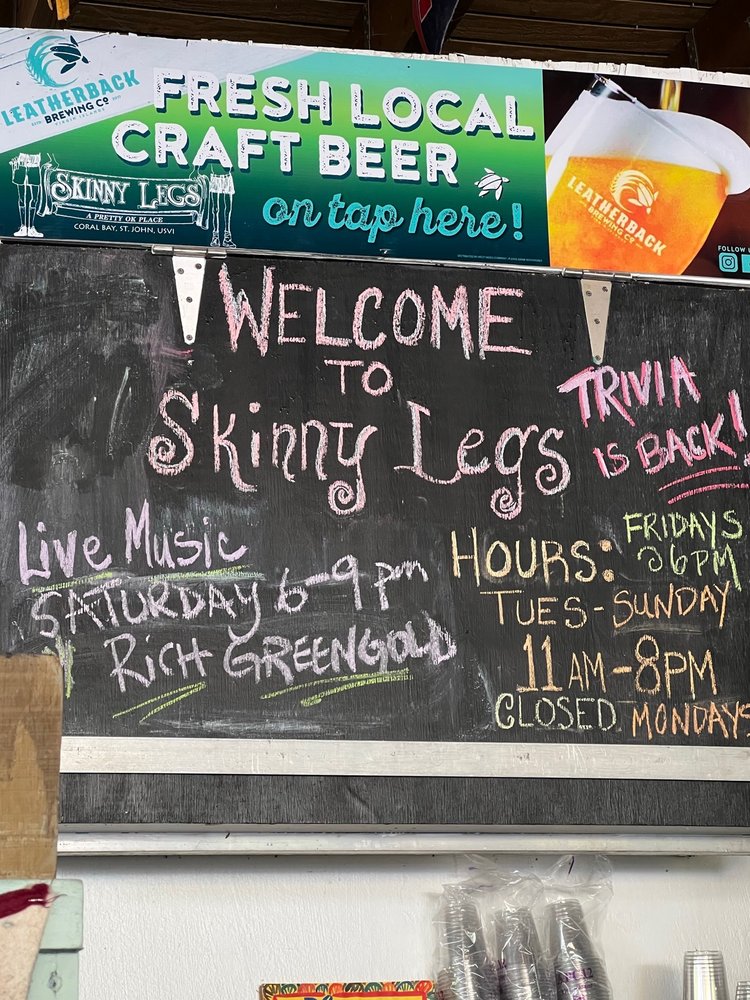 LEATHERBACK
BREWING Co
VIRGIN ISLANDS
FRESH LOCAL
CRAFT BEER
on tap here!
SKINNY LEGS
A PRETTY OK PLACE
CORAL BAY, ST. JOHN, USVI
LEATHERBACK
BREWING Co
FOLLOW U
WELCOME
TO
Skinny Legs
TRIVIA
IS BACK!
FRIDAYS
@ 6PM
Live Music
SATURDAY 6-9pm
RICH GREENGOLD
HOURS:
TUES-SUNDAY
11AM-8PM
CLOSED MONDAYS